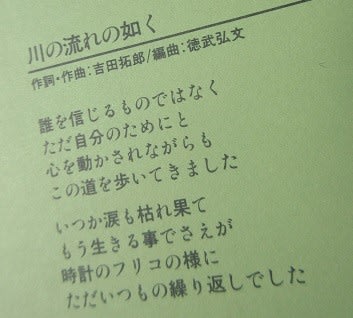 川の流れの如く
作詞・作曲:吉田拓郎/編曲:徳武弘文
誰を信じるものではなく
ただ自分のためにと
心を動かされながらも
この道を歩いてきました
いつか涙も枯れ果て
もう生きる事でさえが
時計のフリコの様に
ただいつもの繰り返しでした